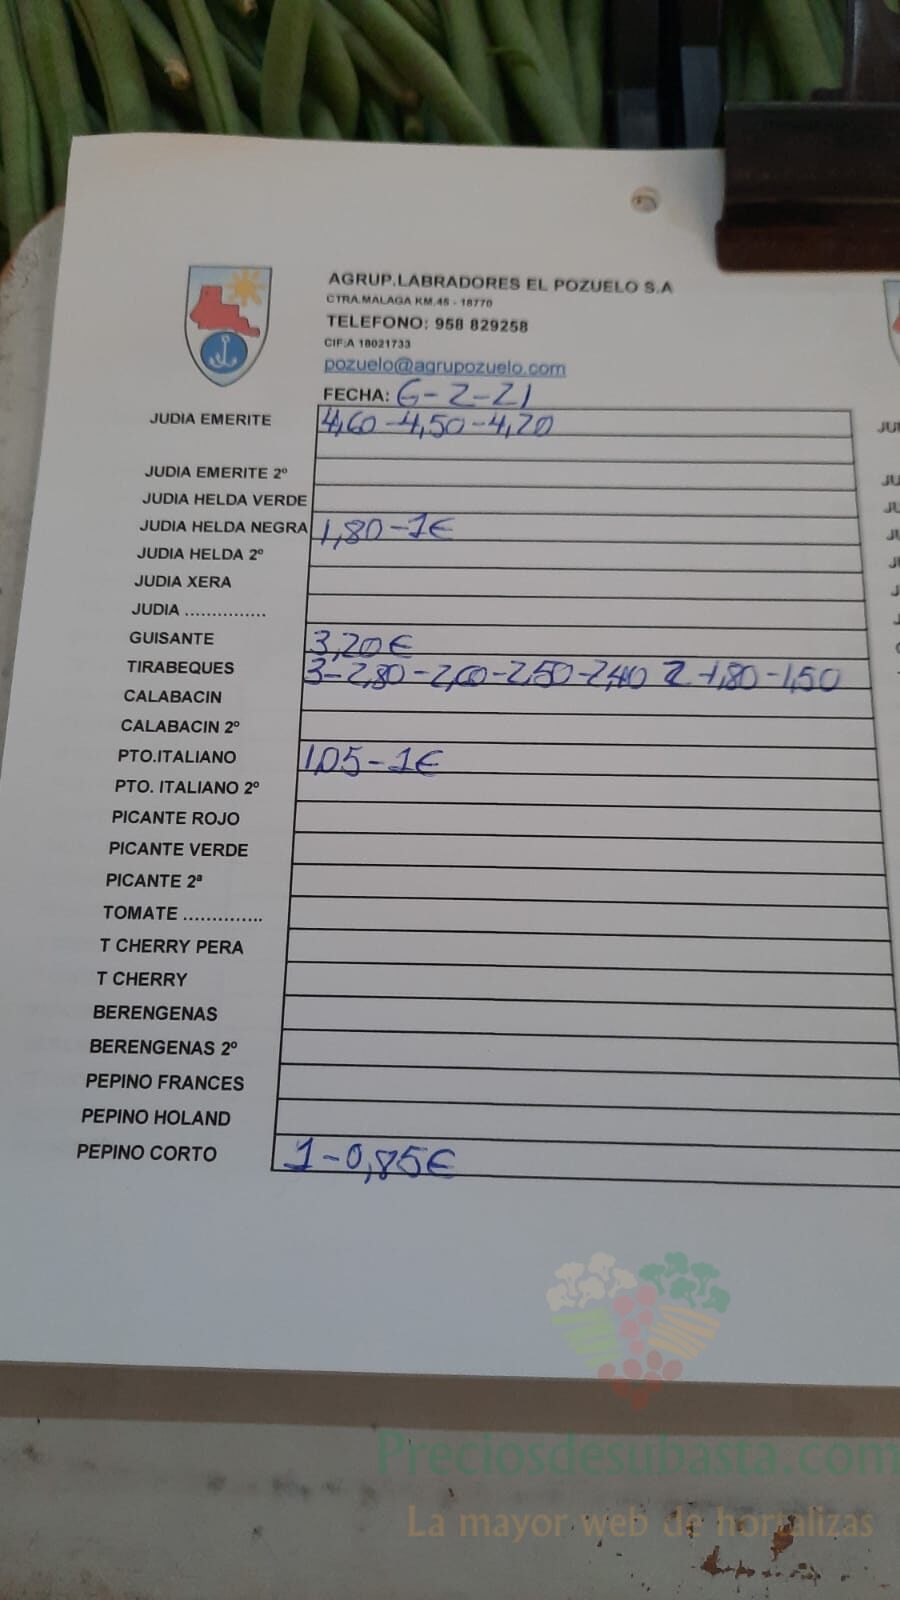 AGRUP.LABRADORES EL POZUELO S.A
CTRA.MALAGA KM.45 - 18770
TELEFONO: 958 829258
CIF:A 18021733
pozuelo@agrupozuelo.com
FECHA: 6-2-21
JUDIA EMERITE 4,60-4,50-4,20
JUDIA EMERITE 2º
JUDIA HELDA VERDE
JUDIA HELDA NEGRA 1,80-1€
JUDIA HELDA 2º
JUDIA XERA
JUDIA ...............
GUISANTE 3,20€
TIRABEQUES 3-2,80-2,60-2,50-2,40 2-1,80-1,50
CALABACIN
CALABACIN 2º
PTO.ITALIANO 1,05-1€
PTO. ITALIANO 2º
PICANTE ROJO
PICANTE VERDE
PICANTE 2ª
TOMATE ..............
T CHERRY PERA
T CHERRY
BERENGENAS
BERENGENAS 2º
PEPINO FRANCES
PEPINO HOLAND
PEPINO CORTO 1-0,85€
Preciosdesubasta.com
La mayor web de hortalizas